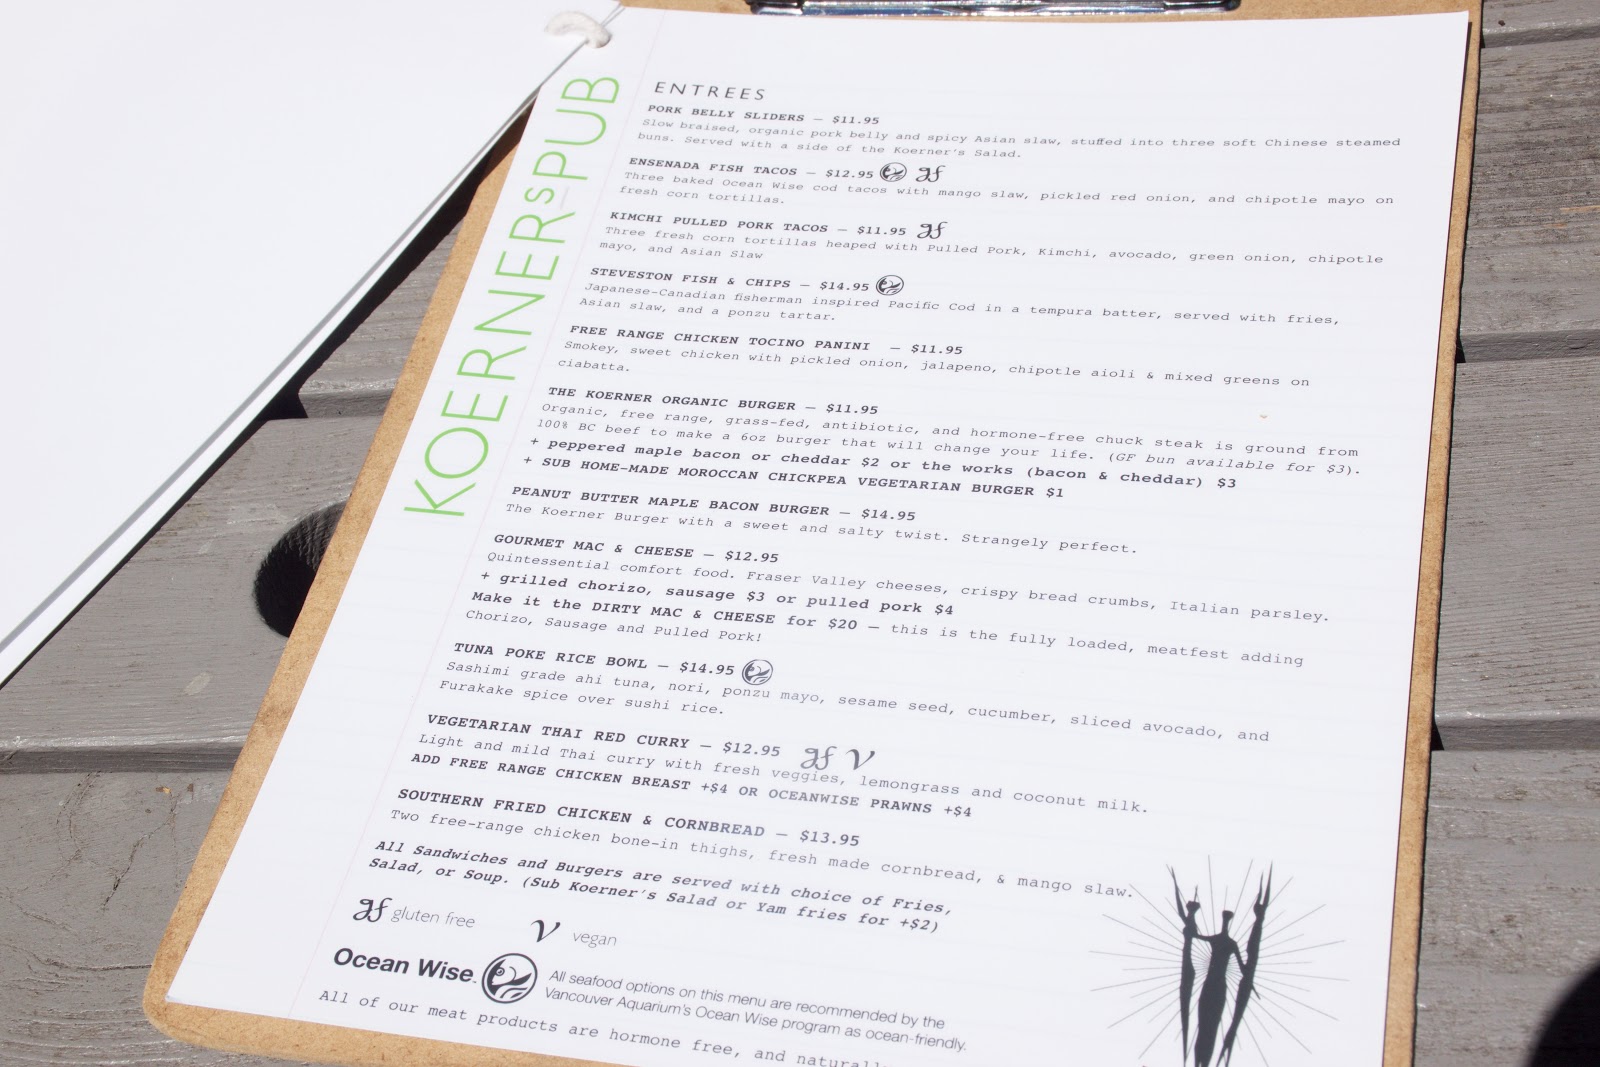 KOERNER'S PUB
ENTREES
PORK BELLY SLIDERS — $11.95
Slow braised, organic pork belly and spicy Asian slaw, stuffed into three soft Chinese steamed
buns. Served with a side of the Koerner's Salad.
ENSENADA FISH TACOS — $12.95 gf
Three baked Ocean Wise cod tacos with mango slaw, pickled red onion, and chipotle mayo on
fresh corn tortillas.
KIMCHI PULLED PORK TACOS — $11.95 gf
Three fresh corn tortillas heaped with Pulled Pork, Kimchi, avocado, green onion, chipotle
mayo, and Asian Slaw
STEVESTON FISH & CHIPS — $14.95
Japanese-Canadian fisherman inspired Pacific Cod in a tempura batter, served with fries,
Asian slaw, and a ponzu tartar.
FREE RANGE CHICKEN TOCINO PANINI — $11.95
Smokey, sweet chicken with pickled onion, jalapeno, chipotle aioli & mixed greens on
ciabatta.
THE KOERNER ORGANIC BURGER — $11.95
Organic, free range, grass-fed, antibiotic, and hormone-free chuck steak is ground from
100% BC beef to make a 6oz burger that will change your life. (GF bun available for $3).
+ peppered maple bacon or cheddar $2 or the works (bacon & cheddar) $3
+ SUB HOME-MADE MOROCCAN CHICKPEA VEGETARIAN BURGER $1
PEANUT BUTTER MAPLE BACON BURGER — $14.95
The Koerner Burger with a sweet and salty twist. Strangely perfect.
GOURMET MAC & CHEESE — $12.95
Quintessential comfort food. Fraser Valley cheeses, crispy bread crumbs, Italian parsley.
+ grilled chorizo, sausage $3 or pulled pork $4
Make it the DIRTY MAC & CHEESE for $20 — this is the fully loaded, meatfest adding
Chorizo, Sausage and Pulled Pork!
TUNA POKE RICE BOWL — $14.95
Sashimi grade ahi tuna, nori, ponzu mayo, sesame seed, cucumber, sliced avocado, and
Furakake spice over sushi rice.
VEGETARIAN THAI RED CURRY — $12.95 gf v
Light and mild Thai curry with fresh veggies, lemongrass and coconut milk.
ADD FREE RANGE CHICKEN BREAST +$4 OR OCEANWISE PRAWNS +$4
SOUTHERN FRIED CHICKEN & CORNBREAD — $13.95
Two free-range chicken bone-in thighs, fresh made cornbread, & mango slaw.
All Sandwiches and Burgers are served with choice of Fries,
Salad, or Soup. (Sub Koerner's Salad or Yam fries for +$2)
gf gluten free v vegan
Ocean Wise
All seafood options on this menu are recommended by the
Vancouver Aquarium's Ocean Wise program as ocean-friendly.
All of our meat products are hormone free, and